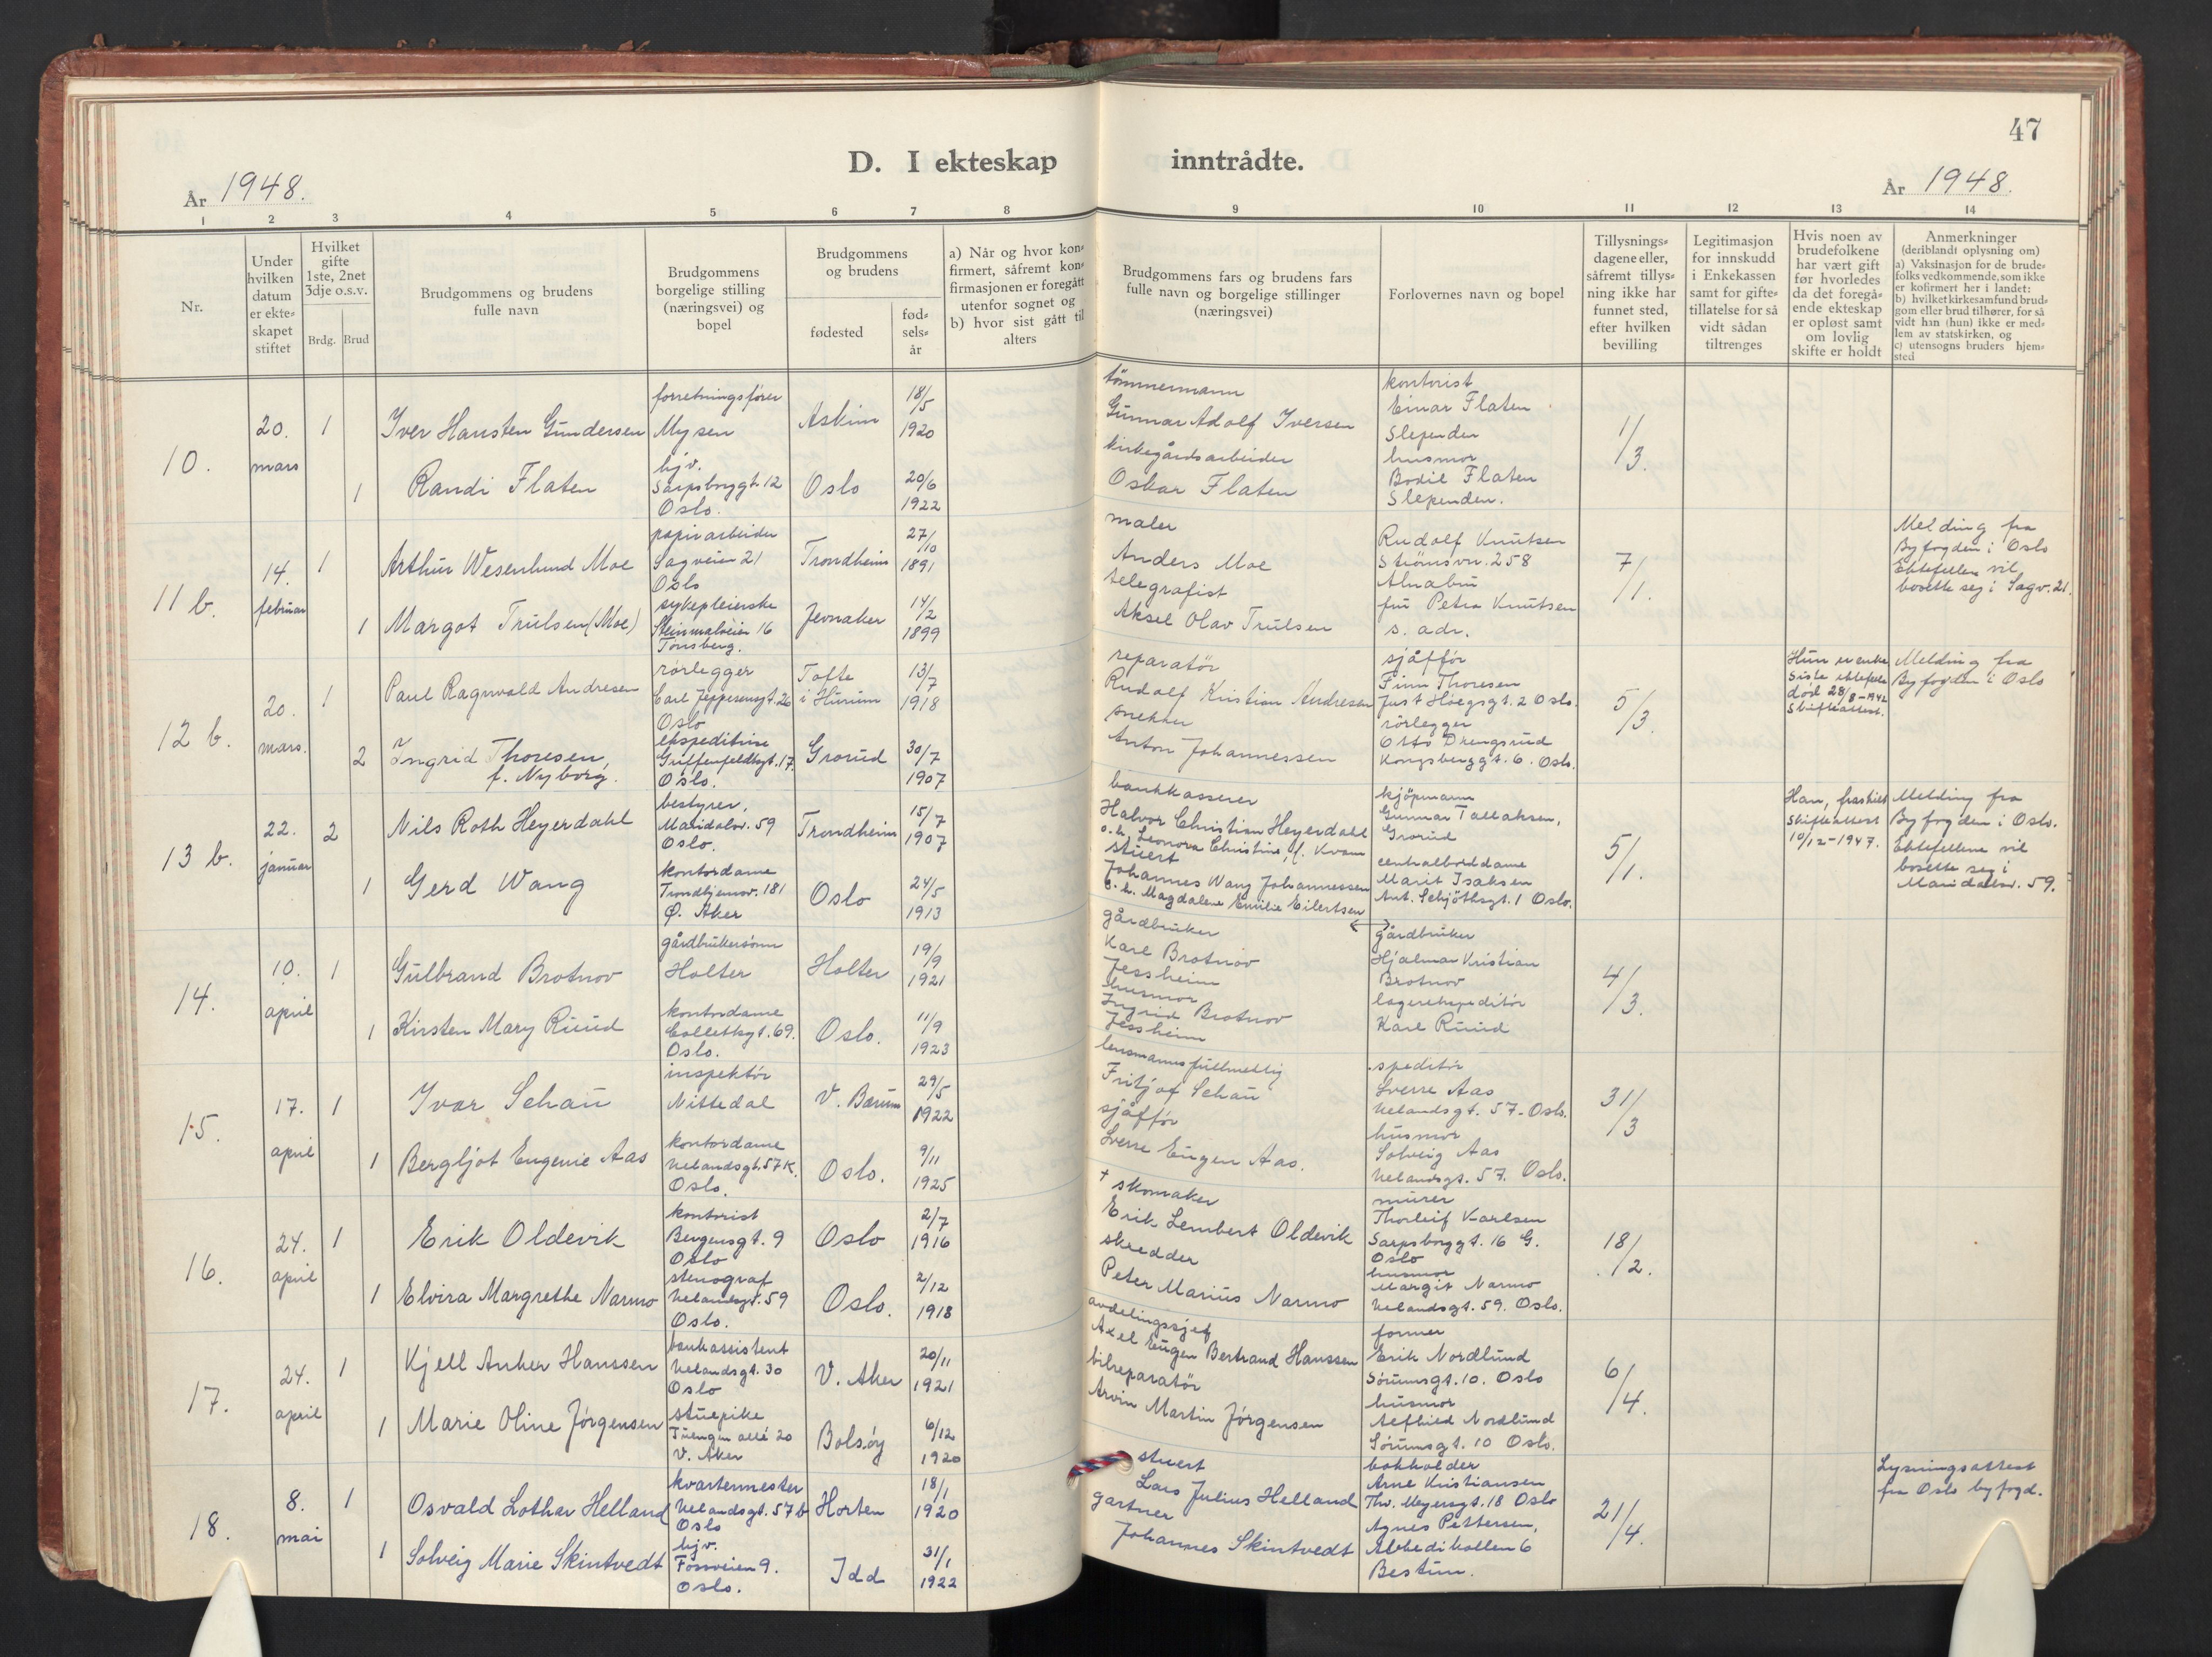 47
D. I ekteskap inntrådte.
År 1948.
År 1948.
1 2 3 4 5 6 7 8 9 10 11 12 13 14
Nr.
Under
hvilken
datum
er ekte-
skapet
stiftet
Hvilket
gifte
1ste, 2net
3dje o.s.v.
Brdg. Brud
Brudgommens og brudens
fulle navn
Brudgommens
borgelige stilling
(næringsvei) og
bopel
Brudgommens
og brudens
fødested
fød-
sels-
år
a) Når og hvor kon-
firmert, såfremt kon-
firmasjonen er foregått
utenfor sognet og
b) hvor sist gått til
alters
Brudgommens fars og brudens fars
fulle navn og borgelige stillinger
(næringsvei)
Forlovernes navn og bopel
Tillysnings-
dagene eller,
såfremt tillys-
ning ikke har
funnet sted,
efter hvilken
bevilling
Legitimasjon
for innskudd
i Enkekassen
samt for gifte-
tillatelse for så
vidt sådan
tiltrenges
Hvis noen av
brudefolkene
har vært gift
før hvorledes
da det foregå-
ende ekteskap
er opløst samt
om lovlig
skifte er holdt
Anmerkninger
(deriblandt oplysning om)
a) Vaksinasjon for de brude-
folks vedkommende, som ikke
er kofirmert her i landet:
b) hvilket kirkesamfund brud-
gom eller brud tilhører, for så
vidt han (hun) ikke er med-
lem av statskirken, og
c) utensogns bruders hjem-
sted
10.
20.
mars
1
Iver Hansten Gundersen
forretningsfører
Mysen
Askim
18/5
1920
1
Randi Flaten
hjv.
Sarpsborggt. 12
Oslo.
Oslo
20/6
1922
tömmermann
Gunnar Adolf Iversen
kirkegårdsarbeider
Oskar Flaten
kontorist
Einar Flaten
Slependen
husmor
Bodil Flaten
Slependen.
1/3.
11 b.
14.
februar
1
Arthur Wesenlund Moe
papirarbeider
Sagveien 21
Oslo
Trondheim
27/10
1891
1
Margot Trulsen (Moe)
sykepleierske
Steinmalveien 16
Tønsberg.
Jevnaker
14/2
1899
maler
Anders Moe
telegrafist
Aksel Olav Trulsen
Rudolf Knutsen
Strömsvn. 258
Alnabru
fru Petra Knutsen
s. adr.
7/1.
Melding fra
Byfogden i Oslo
Ektefellene vil
bosette seg i Sagv. 21.
12 b.
20.
mars.
1
Paul Ragnvald Andresen
rørlegger
Carl Jeppesensgt. 26
Oslo
Tofte
i Hurum
13/7
1918
2
Ingrid Thoresen,
f. Nyborg.
ekspeditrise
Griffenfeldtsgt. 17.
Oslo.
Grorud
30/7
1907
reparatør
Rudolf Kristian Andresen
snekker
Anton Johannessen
sjåffør
Finn Thoresen
Just Høegsgt. 2 Oslo.
rörlegger
Otto Drengsrud
Kongsberggt. 6. Oslo.
5/3.
Hun er enke
Siste ektefelle
död 28/8-1942
Skifteattest.
Melding fra
Byfogden i Oslo
13 b.
22.
januar
2
Nils Roth Heyerdahl
bestyrer.
Maridalsv. 59
Oslo.
Trondheim
15/7
1907
1
Gerd Wang
kontordame
Trondhjemsv. 181
Ø. Aker
Oslo
24/5
1913
bankkasserer
Halvor Christian Heyerdahl
o.h. Leonora Christine, f. Kvam
stuert
Johannes Wang Johannessen
o.h. Magdalene Emilie Eilertsen
kjöpmann
Gunnar Tallaksen,
Grorud
centralborddame
Marit Isaksen
Ant. Schjöthsgt. 1 Oslo.
5/1.
Han, fraskilt
Skifteattest
10/12-1947.
Melding fra
Byfogden i Oslo.
Ektefellene vil
bosette seg i
Maridalsv. 59.
14.
10.
april
1
Gulbrand Brotnov
gårdbrukersønn
Holter
Holter
19/9
1921
1
Kirsten Mary Ruud
kontordame
Collettsgt. 69.
Oslo.
Oslo.
11/9
1923
gårdbruker
Karl Brotnov
Jessheim
husmor
Ingrid Brotnov
Jessheim
gårdbruker
Hjalmar Kristian
Brotnov
lagerekspeditör
Karl Ruud
4/3.
15.
17.
april
1
Ivar Schau
inspektör
Nittedal
V. Bærum
29/5
1922
1
Bergljot Eugenie Aas
kontordame
Uelandsgt. 57 K.
Oslo.
Oslo.
9/11
1925
lensmannsfullmektig
Fritjof Schau
sjåffør
Sverre Eugen Aas.
speditör
Sverre Aas
Uelandsgt. 57. Oslo.
husmor
Solveig Aas
Uelandsgt. 57. Oslo.
31/3
16.
24.
april
1
Erik Oldevik
kontorist
Bergensgt. 9
Oslo
Oslo
2/7
1916
1
Elvira Margrethe Narmo
stenograf
Uelandsgt. 59
Oslo.
Oslo.
2/12
1918
+ skomaker
Erik Lembert Oldevik
skredder
Peter Marius Narmo
murer
Thorleif Karlsen
Sarpsborggt. 16 G.
Oslo
husmor
Margit Narmo
Uelandsgt. 59. Oslo.
18/2.
17.
24.
april
1
Kjell Anker Hanssen
bankassistent
Uelandsgt. 30
Oslo
V. Aker
20/11
1921
1
Marie Oline Jörgensen
stuepike
Tuengen allé 20
V. Aker
Bolsøy
6/12
1920
avdelingssjef
Axel Eugen Bertrand Hanssen
bilreparatör
Arvin Martin Jörgensen
former
Erik Nordlund
Sörumsgt. 10. Oslo
husmor
Alfhild Nordlund
Sörumsgt. 10 Oslo.
6/4.
18.
8.
mai
1
Osvald Lothar Helland
kvartermester
Uelandsgt. 57 b
Oslo
Horten
18/1
1920
1
Solveig Marie Skintvedt
hjv.
Fossveien 9.
Oslo.
Idd
31/1
1922
stuert
Lars Julius Helland
gartner
Johannes Skintvedt
bokholder
Arne Kristiansen
Thv. Meyersgt. 18 Oslo
Agnes Pettersen,
Abbedikollen 6
Bestum.
21/4.
Lysningsattest
fra Oslo byfogd.